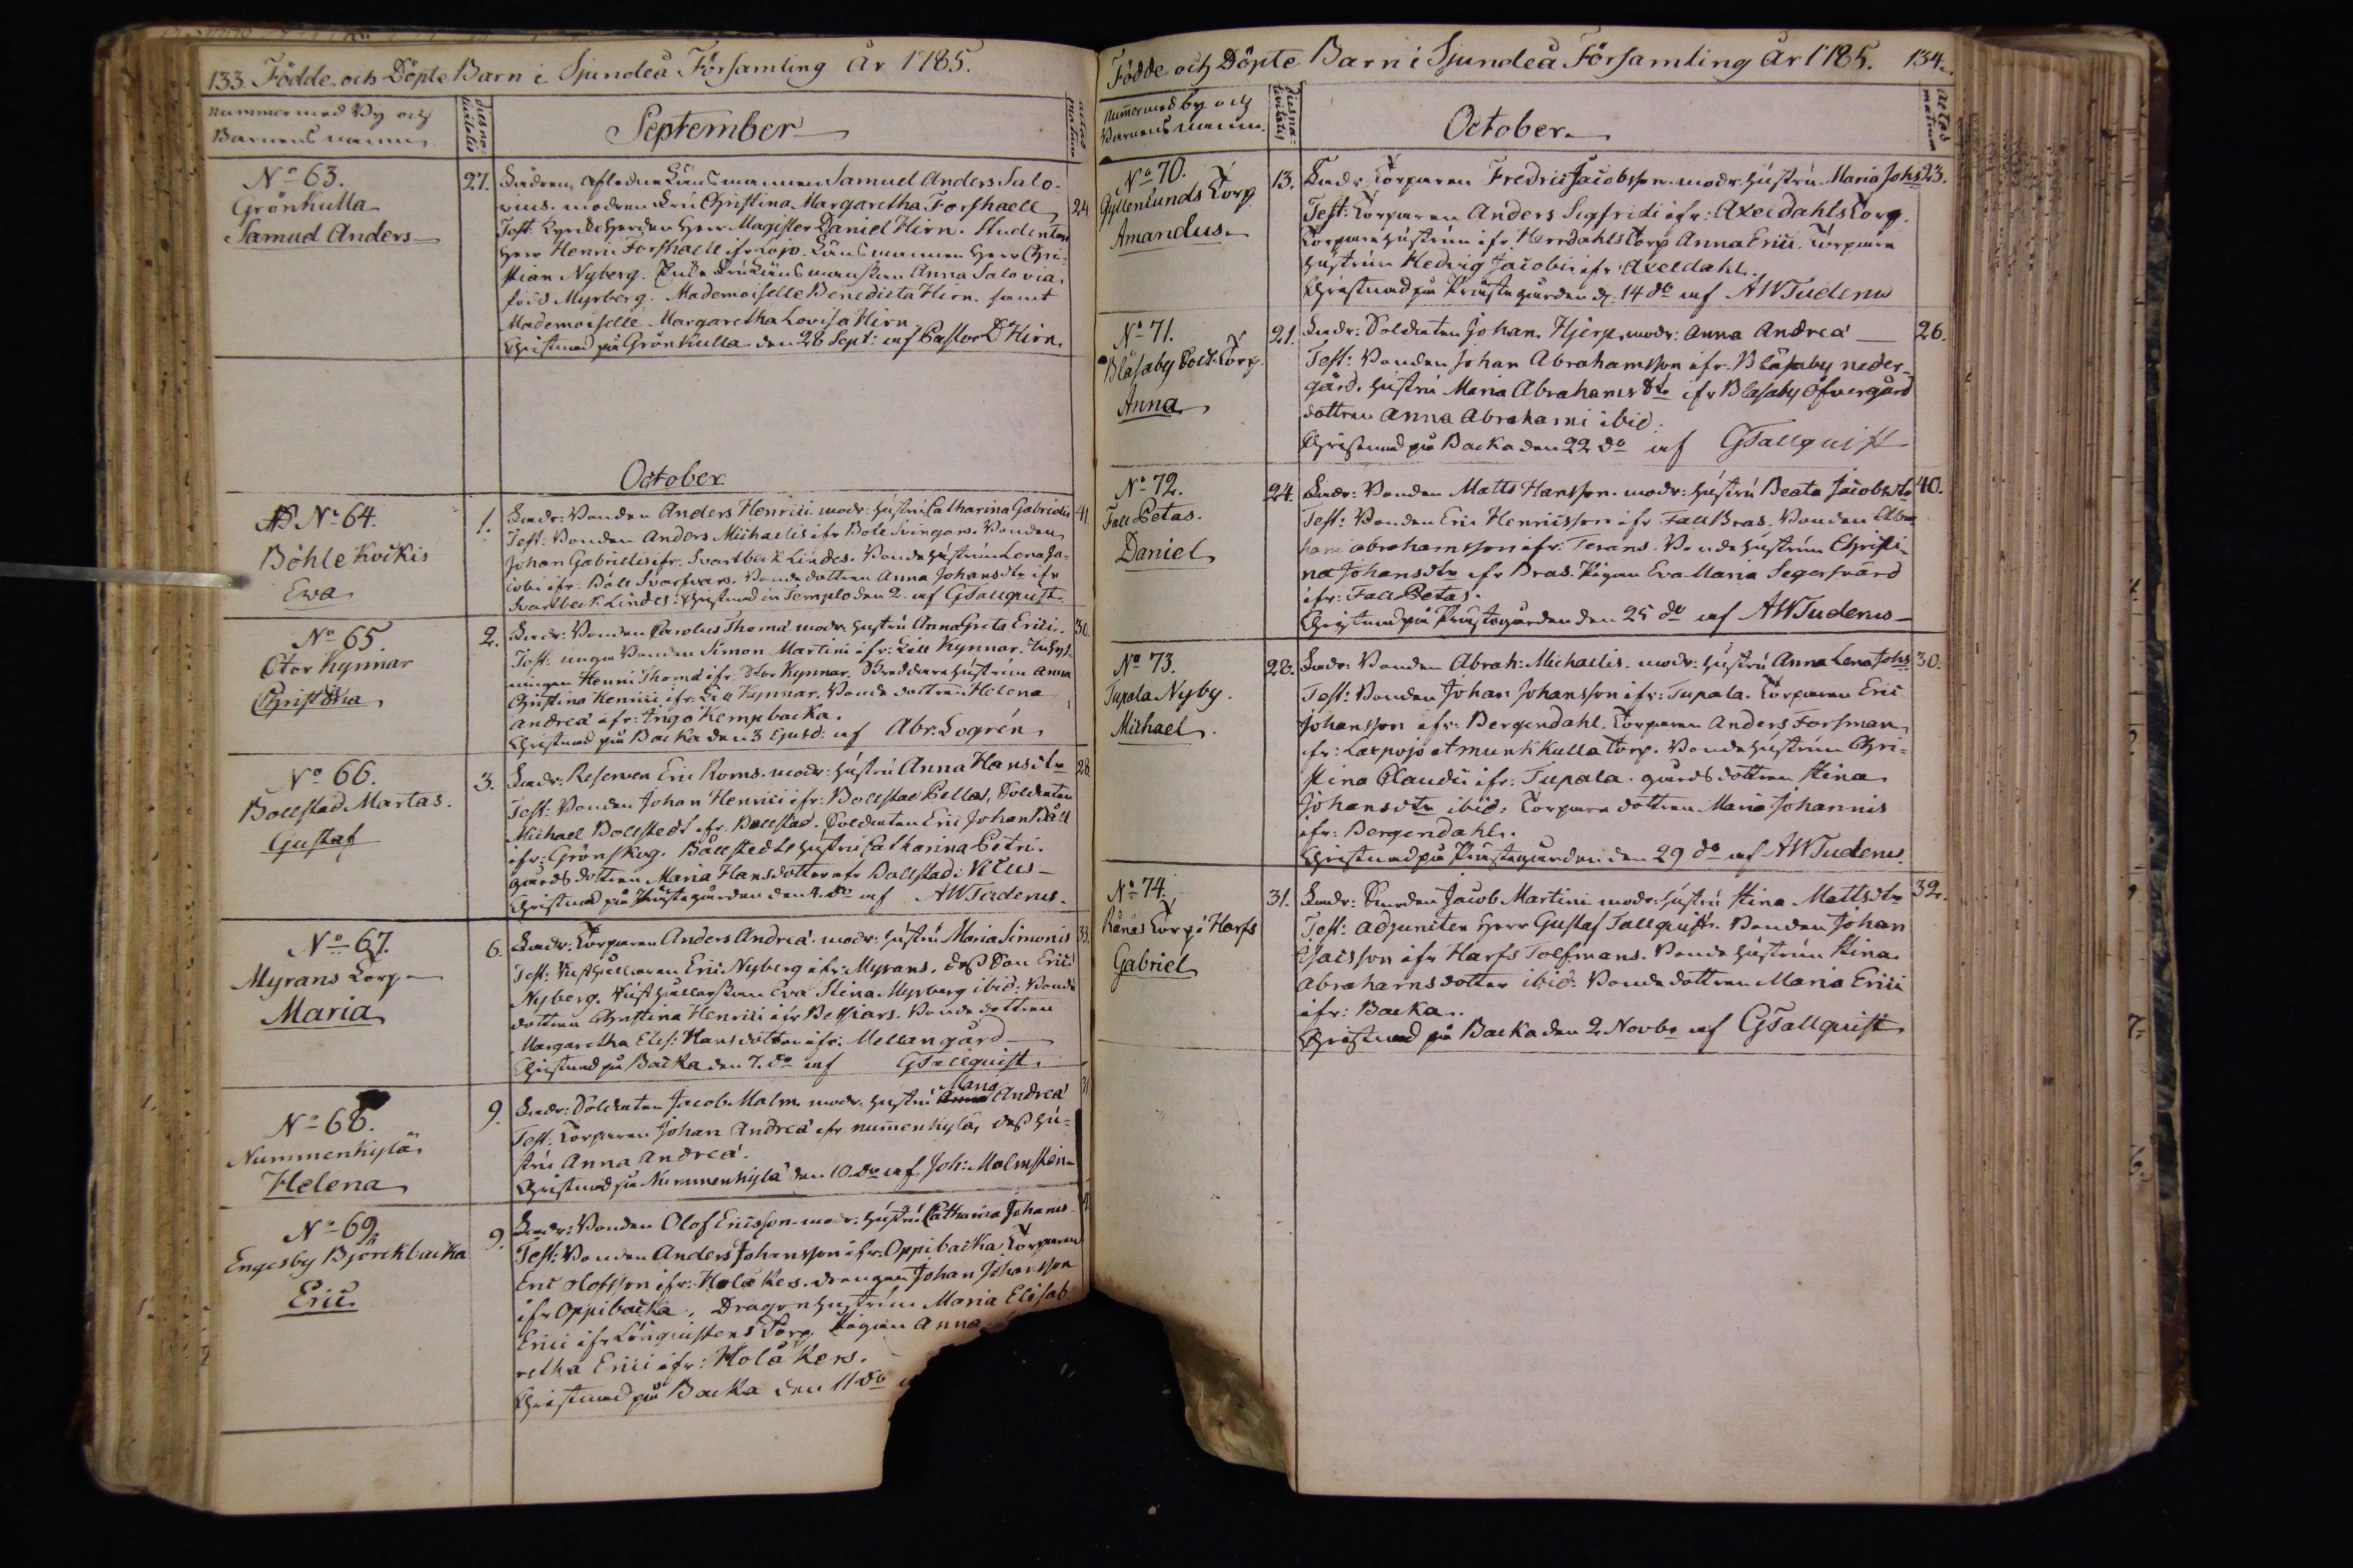 133. Födde och Döpte Barn i Sjundeå Församling År 1785.
Nummer med By och
Barnens namn
dies na-
tivitatis
September
aetas
matrum
No 63.
Grönkulla
Samuel Anders
27.
24
Fadren, afledne Länsmannen Samuel Anders Salo-
vius. modren Fru Christina Margaretha Forshaell,
Test: Kyrckoherden Herr Magister Daniel Hirn. Studenten
Herr Henric Forshaell ifr Lojo. Länsmannen Herr Chri-
stian Nyberg. Enke Fru Länsmanskan Anna Salovia
född Myrberg. Mademoiselle Benedicta Hirn. samt
Mademoiselle Margaretha Lovisa Hirn
Christnad på Grönkulla den 28 Sept: af Pastor D Hirn
October
No 64.
Böhle Kockis
Ewa
1.
41
Fadr: Bonden Anders Henrici modr: hustru Catharina Gabrielis
Test: Bonden Anders Michaelis ifr Bole Svingars. Bonden
Johan Gabrielis ifr. Svartbeck Lindes. Bonde hustrun Lena Ja-
cobi ifr: Böle Svartvars. Bonde dottren Anna Johansdtr ifr
Svartbeck Lindes: Christnad in Templo den 2. af GTallquist.
No 65.
Stor Kynnar
Christina
2.
30.
Fadr: Bonden Carolus Thomæ modr hustru Anna Greta Erici.
Test: unga Bonden Simon Martini ifr: Lill Kynnar. Inhys-
ningen Henric Thomæ ifr: Stor Kynnar. hustrun Anna
Christina Henrici ifr: Lill Kynnar. Bonde dottren Helena
Andreæ ifr: Ingo Kempbacka.
Christnad på Backa den 3 Ejusd: af Abr: Logrén
No 66.
Bollstad Martas.
Gustaf
3.
28
Fadr: Reserven Eric Roms. modr: hustru Anna Hansdtr
Test: Bonden Johan Henrici ifr: Bollstad Pellas, Soldaten
Michael Bollstedt ifr. Bollstad. Soldaten Eric Johan Båll
ifr: Grönskog. Bållstedts hustru Catharina Petri.
gårds dottren Maria Hansdotter ifr Bollstad: Nilus
Christnad på Prästegården den 4. do af AWTudenus.
No 67.
Myrans Torp
Maria
6.
33.
Fadr: Torparen Anders Andreæ. modr: hustru Maria Simonis
Test: Eric Nyberg ifr: Myrans, dess Son Eric
Nyberg. Eva Stina Myrberg ibid: Bonde
dottren Christina Henrici ifr Bessiars. Bonde dottren
Margaretha Elis: Hansdotter ifr: Mellangård
Christnad på Backa den 7. do af GTallquist.
No 68.
Nummenkylä
Helena
9.
31
Maria
Fadr: Soldaten Jacob Malm modr: hustru Anna Andreæ
Test: Torparen Johan Andreæ ifr nummenkylä, dess hu-
stru Anna Andreæ.
Christnad på Nummenkylä den 10. do af Joh: Malmsten
No 69.
Engesby Björckbacka
Eric
9.
Fadr: Bonden Olof Ericsson. modr: hustru Catharina Johannis
Test: Bonden Anders Johansson ifr: Oppibacka Torparen
Eric Olofsson ifr: Holåkers. drengen Johan Johansson
ifr Oppibacka, Dragon hustrun Maria Elisab
Erici ifr Lönqvistens Torp. Pigan Anna
retha Erici ifr: Holåkers.
Christnad på Backa den 11 do
Födde och Döpte Barn i Sjundeå Församling År 1785. 134.
Nummer med by och
Barnens namn.
dies na-
tivitatis
October
aetas
matrum
No 70.
Gyllenlunds Torp
Amandus
13.
23.
Fadr: Torparen Fredric Jacobsson. modr: hustru Maria Johs
Test: Torparen Anders Sigfridi ifr: Axeldahls Torp.
Torpare hustrun ifr. Herrdahls Torp Anna Erici. Torpare
hustrun Hedvig Jacobi ifr: Axeldahl.
Christnad på Prästegården d: 14 do af AWTudenus
No 71.
Blåsaby Sold: Torp.
Anna
21.
26.
Fadr: Soldaten Johan Hjerpe. modr: Anna Andreæ
Test: Bonden Johan Abrahamsson ifr: Blåsaby neder-
gård. hustru Maria Abrahamsdtr ifr Blåsaby öfvergård
dottren Anna Abrahami ibid:
Christnad på Backa den 22 do af GTallquist
No 72.
Fall Petas.
Daniel
24.
40.
Fadr: Bonden Matts Hansson. modr: hustru Beata Jacobsdtr
Test: Bonden Eric Henricsson ifr Fall Bras. Bonden Abra
hami abrahamsson ifr: Terans. Bonde hustrun Christi-
na Johansdtr ifr Bras. Pigan Eva Maria Segersvärd
ifr: Fall Petas.
Christnad på Prästegården den 25 do af AWTudenus
No 73.
Tupala Nyby.
Michael
28.
30.
Fadr: Bonden Abrah: Michaelis. modr: hustru Anna Lena Johs
Test: Bonden Johan Johansson ifr: Tupala. Torparen Eric
Johansson ifr: Bergendahl. Torparen Anders Forsman
ifr: Laxpojo et munkkulla Torp. Bonde hustrun Chri-
stina Claudii ifr: Tupala. gårds dottren Stina
Johansdtr ibid: Torpare dottren Maria Johannis
ifr: Bergendahl.
Christnad på Prästegården den 29 do af AWTudenus.
No 74.
Rånäs Torp i Harfs
Gabriel
31.
32.
Fadr: Jacob Martini modr: hustru Stina Mattsdtr
Test: Adjuncten Herr Gustaf Tallquist. Bonden Johan
Isacsson ifr Harfs Tolfmans. Bonde hustrun Stina
Abrahamsdotter ibid: Bonde dottren Maria Erici
ifr: Backa.
Christnad på Backa den 2 Novbr af GTallquist